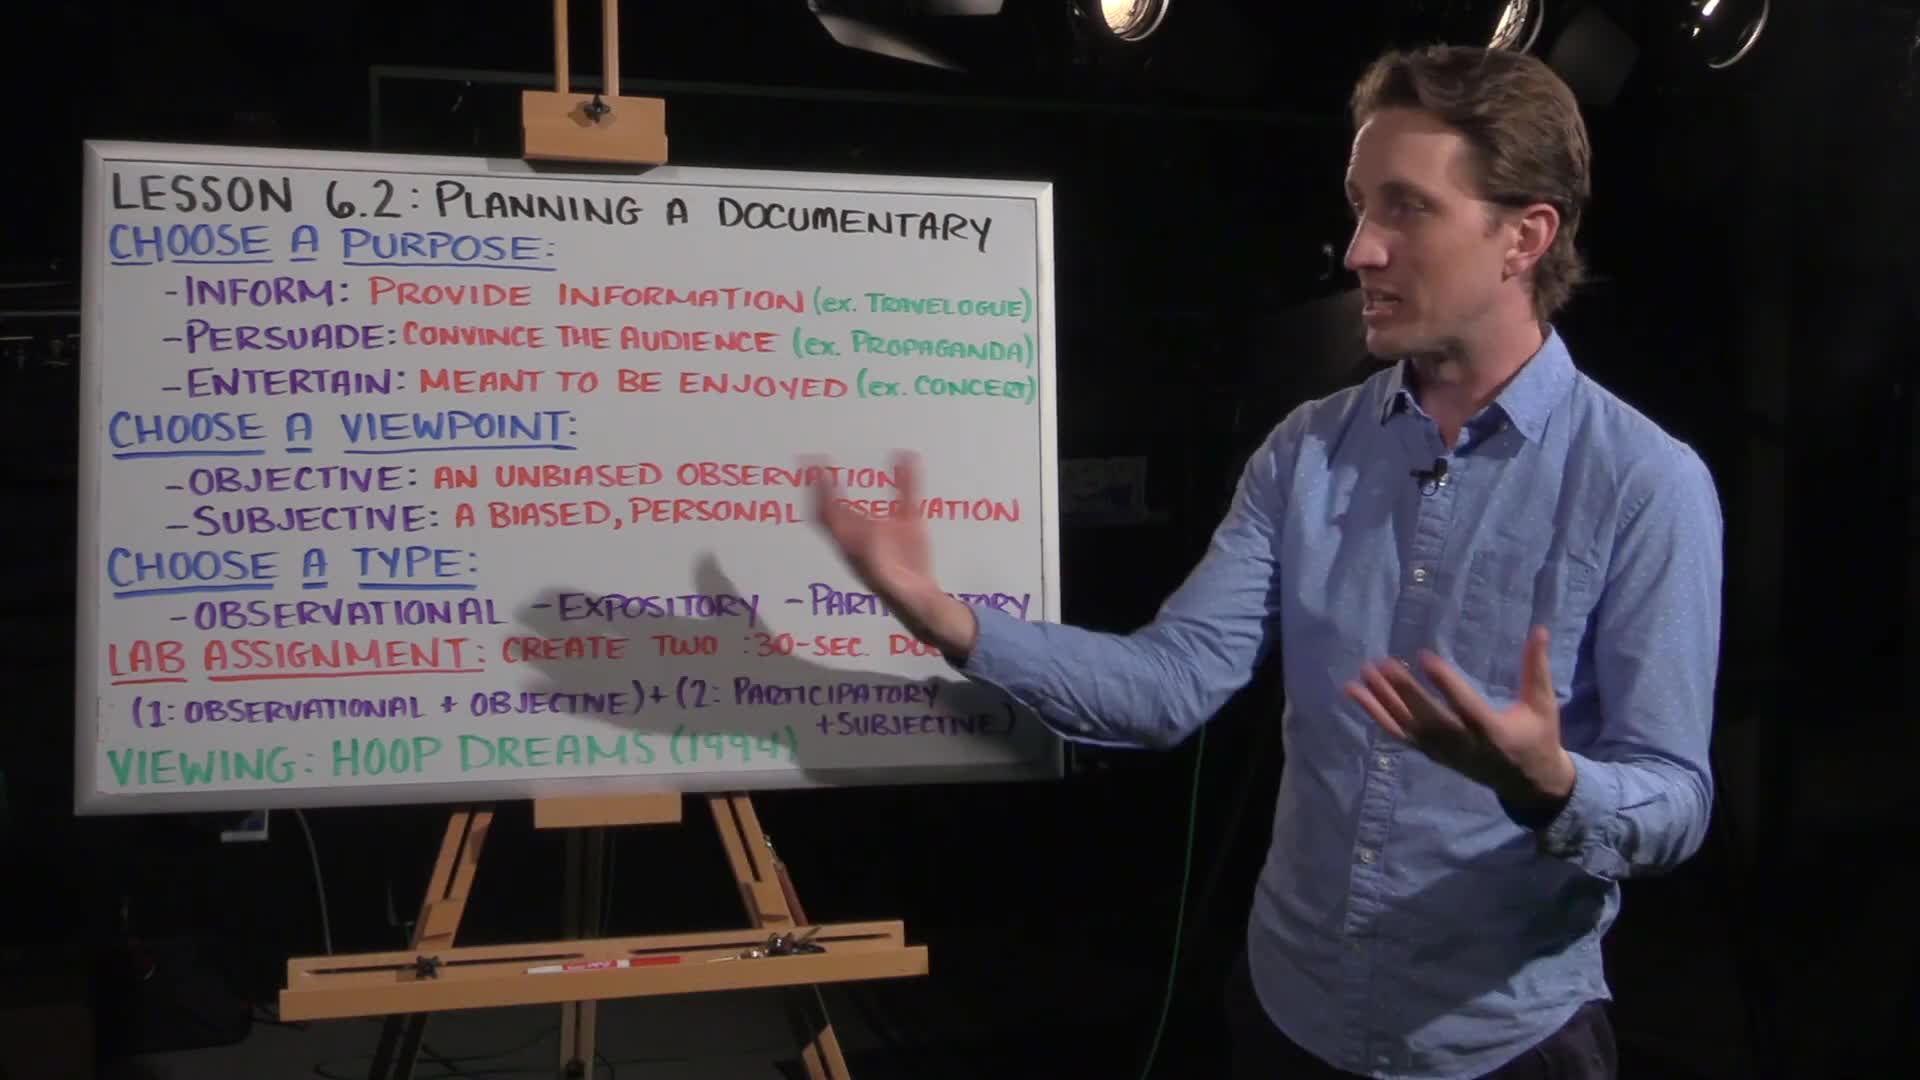 LESSON 6.2: PLANNING A DOCUMENTARY
CHOOSE A PURPOSE:
-INFORM: PROVIDE INFORMATION (ex. TRAVELOGUE)
-PERSUADE: CONVINCE THE AUDIENCE (ex. PROPAGANDA)
-ENTERTAIN: MEANT TO BE ENJOYED (ex. CONCERT)
CHOOSE A VIEWPOINT:
-OBJECTIVE: AN UNBIASED OBSERVATION
-SUBJECTIVE: A BIASED, PERSONAL OBSERVATION
CHOOSE A TYPE:
-OBSERVATIONAL -EXPOSITORY -PARTICIPATORY
LAB ASSIGNMENT: CREATE TWO :30-SEC.
(1: OBSERVATIONAL + OBJECTIVE) + (2: PARTICIPATORY
+SUBJECTIVE)
VIEWING: HOOP DREAMS (1994)